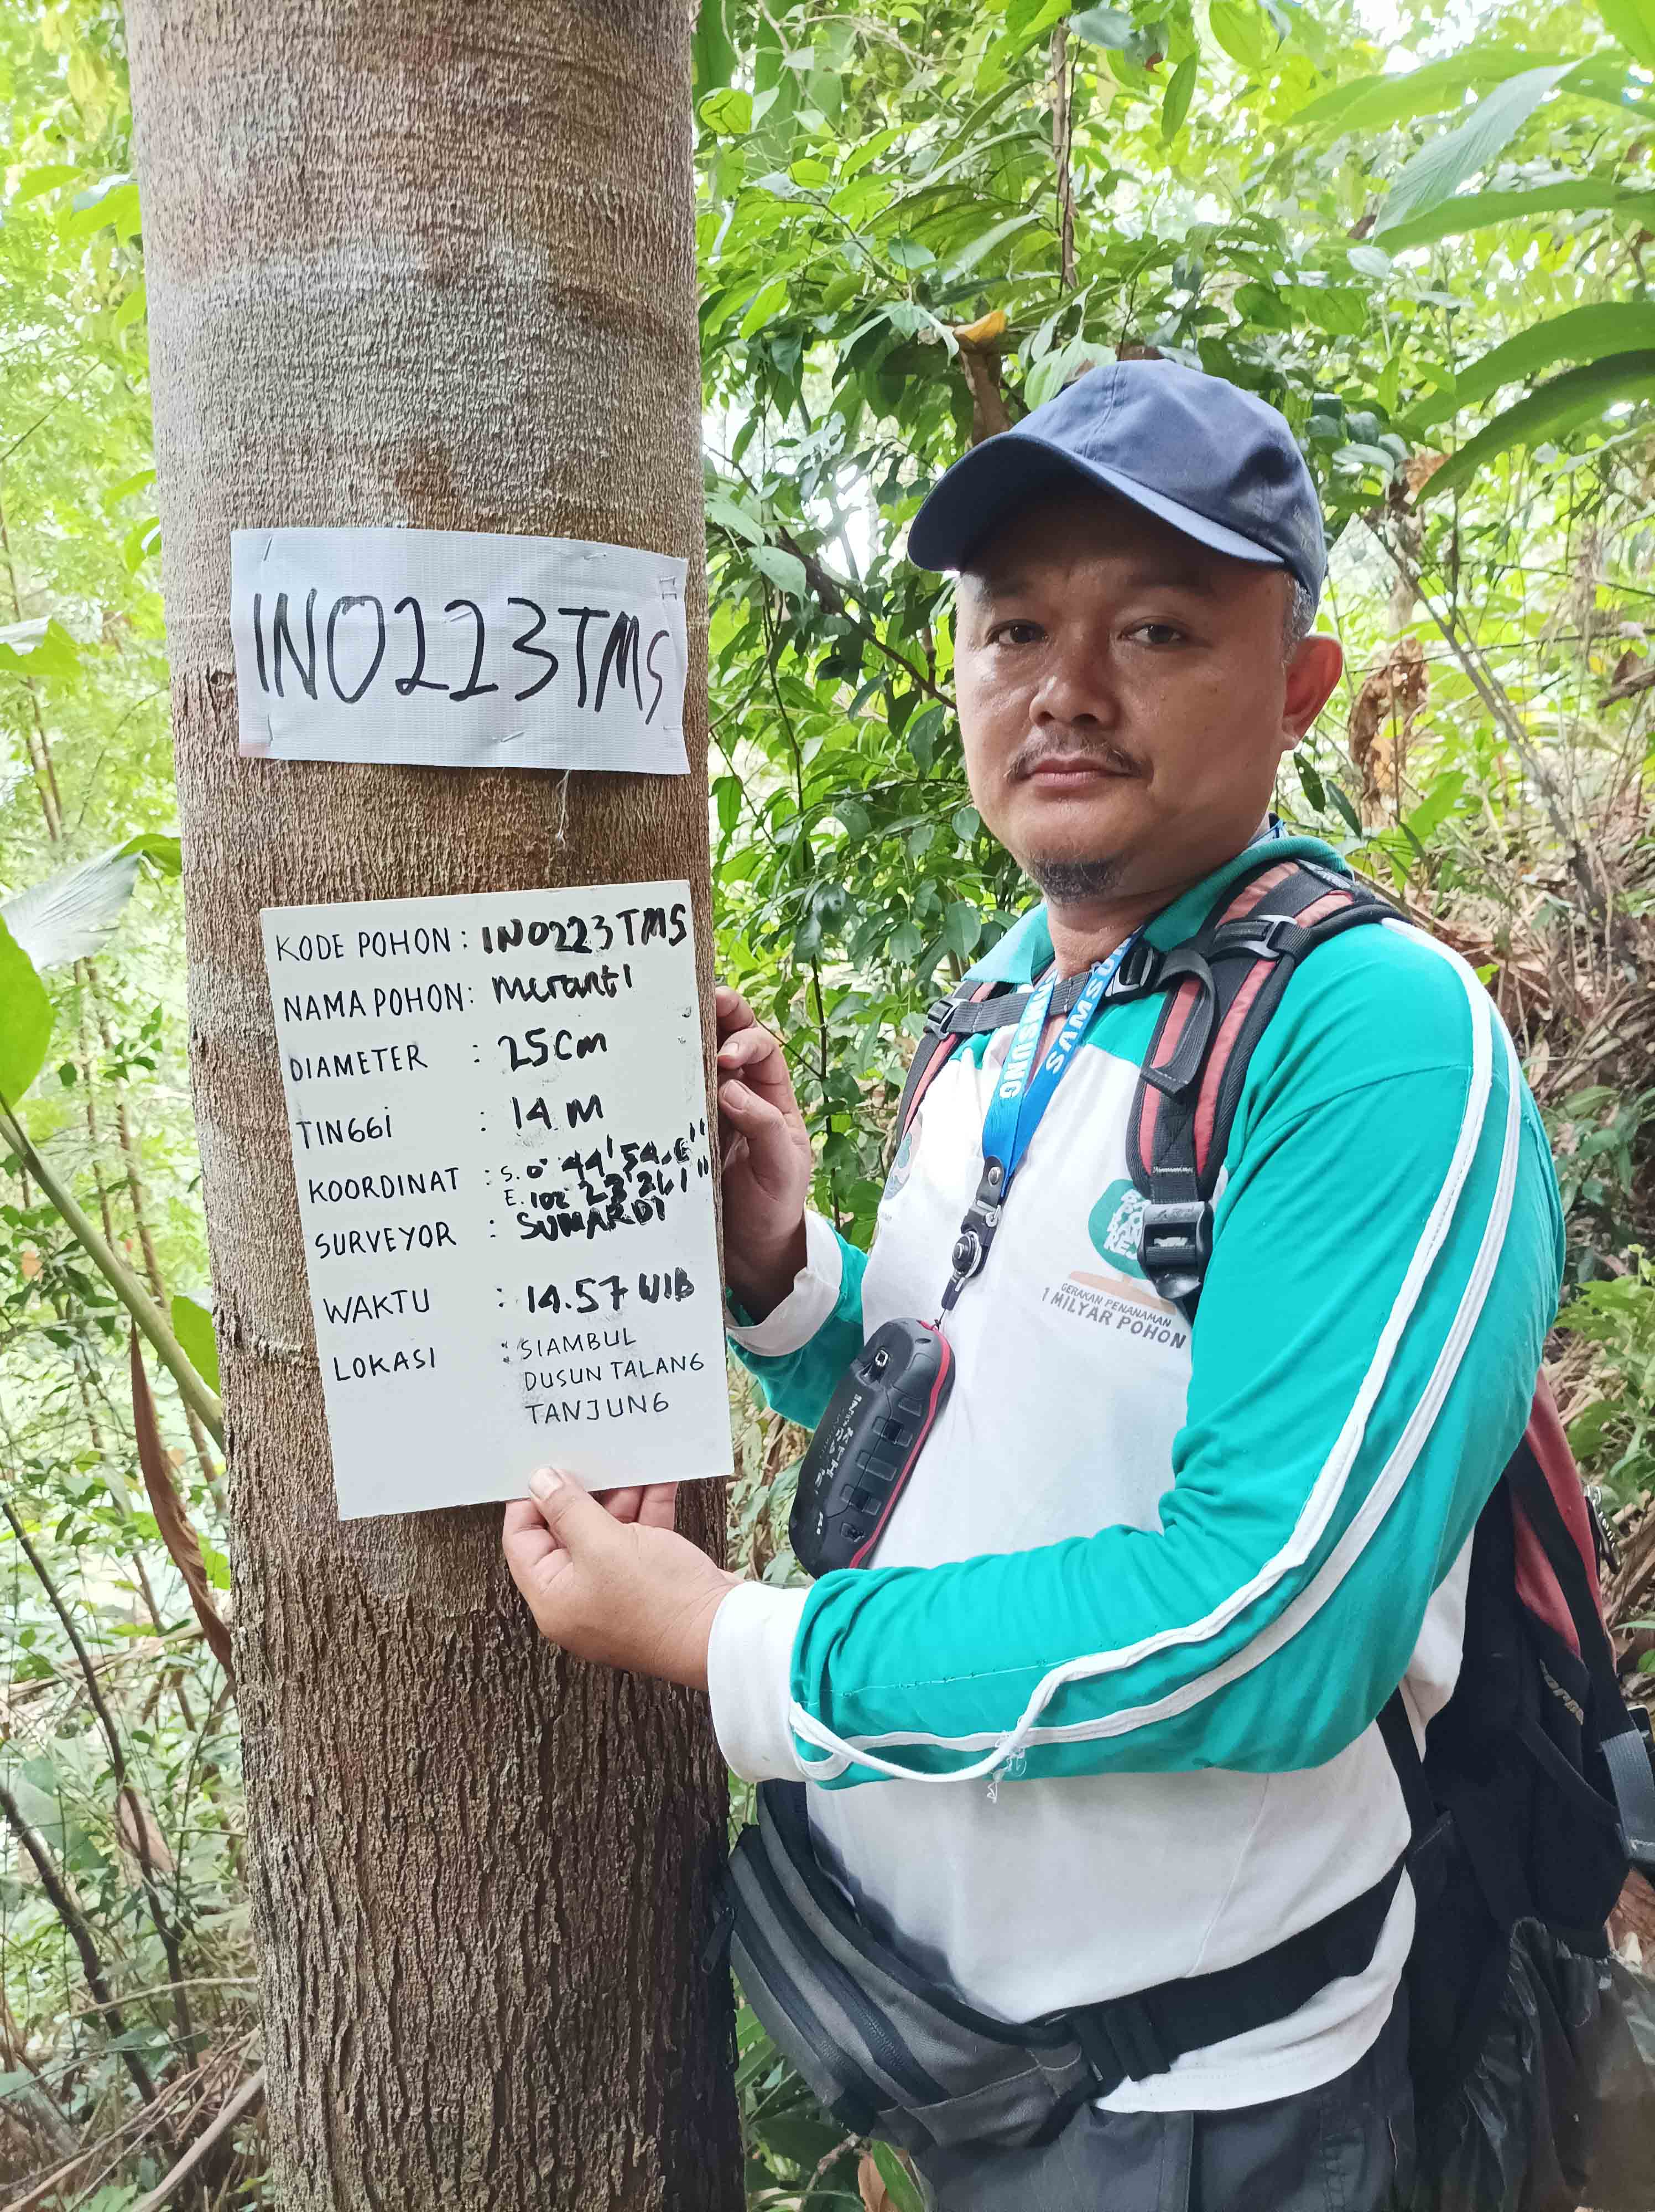 INO223TMS
KODE POHON : INO223TMS
NAMA POHON : Meranti
DIAMETER : 25 cm
TINGGI : 14 M
KOORDINAT : S. 0° 44' 54.6"
E. 102 23'
SURVEYOR : SUMARDI
WAKTU : 14.57 WIB
LOKASI : SIAMBUL
DUSUN TALANG
TANJUNG
GERAKAN PENANAMAN
1 MILYAR POHON